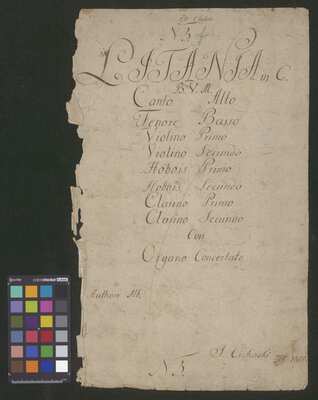 N. 3
LITANIA in C.
B. V. M.
Canto Alto
Tenore Basso
Violino Primo
Violino Secundo
Hobois Primo
Hobois Secundo
Clarino Primo
Clarino Secundo
Con
Organo Concertato
N. 3.